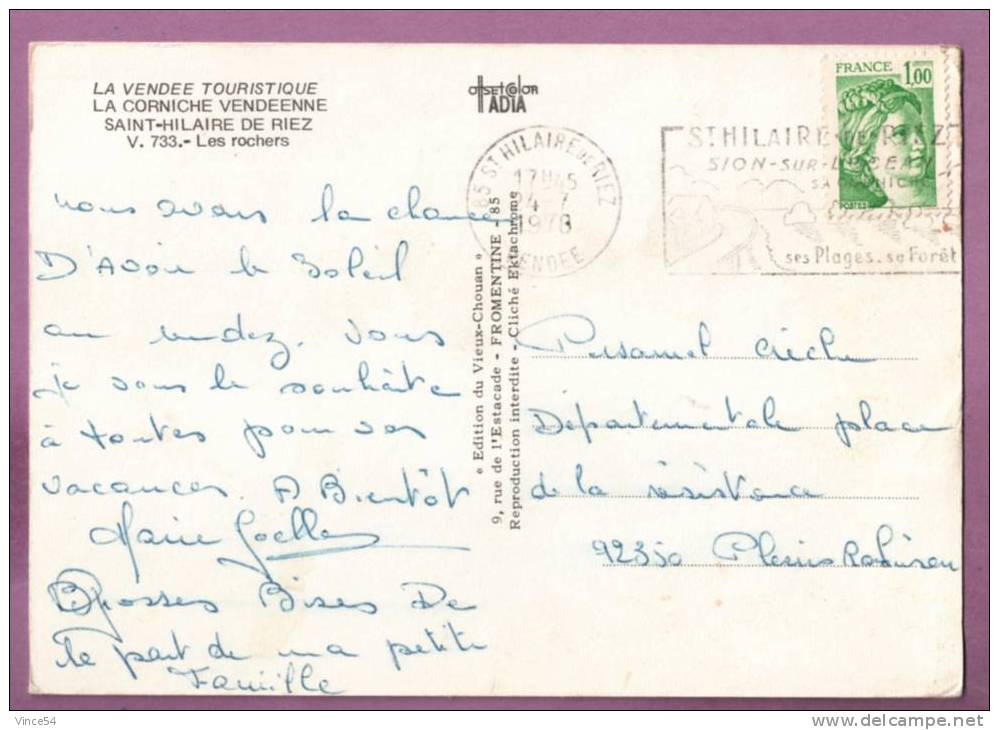 LA VENDEE TOURISTIQUE
LA CORNICHE VENDEENNE
SAINT-HILAIRE DE RIEZ
V. 733.- Les rochers
OffSEtCOlOR
ADIA
85 ST HILAIRE DE RIEZ
17H45
24 - 7
1978
VENDEE
ST HILAIRE-DE-RIEZ
SION-SUR-L'OCEAN
SA CORNICHE
ses Plages. sa Forêt
FRANCE 1,00
POSTES
nous avons la chance
D'Avoir le Soleil
au rendez. vous
je vous le souhaite
à toutes pour vos
vacances. A Bientôt
Marie Joelle
Grosses Bises De
la part de ma petite
Famille
« Edition du Vieux-Chouan »
9, rue de l'Estacade - FROMENTINE - 85
Reproduction interdite - Cliché Ektachrome
Personnel Crèche
Départementale place
de la résistance
92350 Plessis Robinson
Vince54
www.delcampe.net